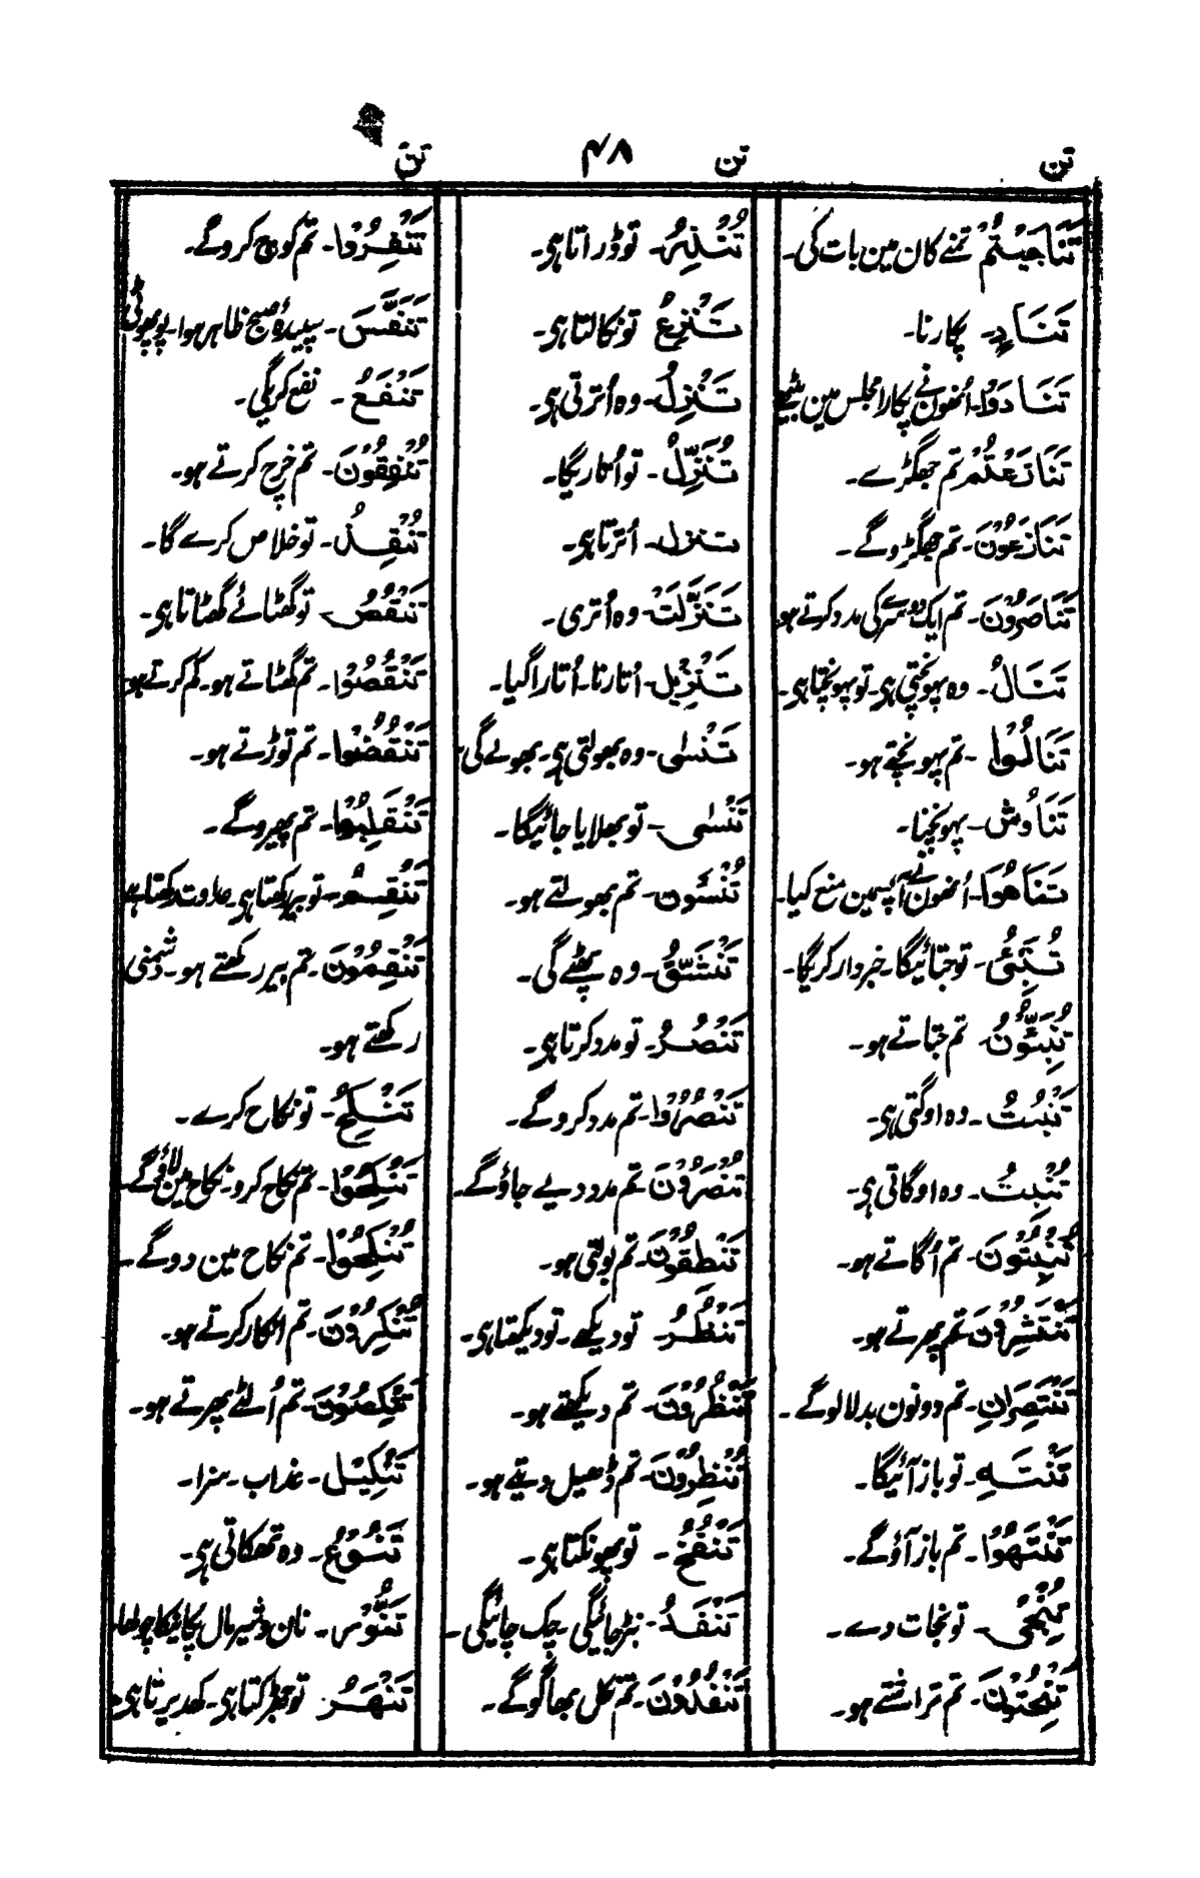 تن
تن
۴۸
تن
تَنَاجَيْتُمْ تمنے کان مین بات کی۔
تَنَادٍ۔ پکارنا۔
تَنَادَوْا۔ اُنھون نے پکارا مجلس مین بیٹھے
تَنَازَعْتُمْ تم جھگڑے۔
تَنَازَعُوْنَ۔ تم جھگڑوگے۔
تَنَاصَرُوْنَ۔ تم ایک دوسرے کی مدد کرتے ہو
تَنَالُ۔ وہ پہونچتی ہی۔ تو پہونچتا ہی۔
تَنَالُوْا۔ تم پہونچتے ہو۔
تَنَاوُش۔ پہونچنا۔
تَنَاهَوْا۔ اُنھون نے آپسمین منع کیا۔
تُنَبِّئُ۔ تو جتائیگا۔ خبردار کریگا۔
تُنَبِّئُوْنَ۔ تم جتاتے ہو۔
تَنْبُتُ۔ وہ اوگتی ہی۔
تُنْبِتُ۔ وہ اوگاتی ہی۔
تُنْبِتُوْنَ۔ تم اُگاتے ہو۔
تَنْتَشِرُوْنَ تم پھرتے ہو۔
تَنْتَصِرَانِ۔ تم دونون بدلا لوگے۔
تَنْتَهِ۔ تو باز آئیگا۔
تَنْتَهُوْا۔ تم باز آؤگے۔
تُنْجِىْ۔ تو نجات دے۔
تَنْحِتُوْنَ۔ تم تراشتے ہو۔
تُنْذِرُ۔ تو ڈراتا ہی۔
تَنْزِعُ تو نکالتا ہی۔
تَنْزِلُ۔ وہ اُترتی ہی۔
تُنَزِّلُ۔ تو اُتاریگا۔
تنزل۔ اُترتا ہی۔
تَنَزَّلَتْ۔ وہ اُتری۔
تَنْزِيْل۔ اُتارنا۔ اُتارا گیا۔
تَنْسٰى۔ وہ بھولتی ہی۔ بھولے گی۔
تَنْسٰى۔ تو بھلایا جائیگا۔
تُنْسَون۔ تم بھولتے ہو۔
تَنْشَقُّ۔ وہ پھٹے گی۔
تَنْصُرُ۔ تو مدد کرتا ہی۔
تَنْصُرُوْا۔ تم مدد کروگے۔
تُنْصَرُوْنَ۔ تم مدد دیے جاؤگے۔
تَنْطِقُوْنَ۔ تم بولتی ہو۔
تَنْظُرُ تو دیکھے۔ تو دیکھتا ہی۔
تَنْظُرُوْنَ۔ تم دیکھتے ہو۔
تُنْظِرُوْنَ۔ تم ڈھیل دیتے ہو۔
تَنْفُخُ۔ تو پھونکتا ہی۔
تَنْفَدُ۔ نبڑ جائیگی۔ چک جائیگی۔
تَنْفُذُوْنَ۔ تم نکل بھاگوگے۔
تَنْفِرُوْا۔ تم کوچ کروگے۔
تَنَفَّسَ۔ سپیدۂ صبح ظاہر ہوا۔ پو پھوٹی
تَنْفَعُ۔ نفع کریگی۔
تُنْفِقُوْنَ۔ تم خرچ کرتے ہو۔
تُنْقِذُ۔ تو خلاص کرے گا۔
تَنْقُصُ تو گھٹائے گھٹاتا ہی۔
تَنْقُصُوْا۔ تم گھٹاتے ہو۔ کم کرتے ہو
تَنْقُضُوْا۔ تم توڑتے ہو۔
تَنْقَلِبُوْا۔ تم پھروگے۔
تَنْقِمُ۔ تو بیر رکھتا ہی۔ عداوت رکھتا ہی
تَنْقِمُوْنَ۔ تم بیر رکھتے ہو۔ دشمنی
رکھتے ہو۔
تَنْكِحُ۔ تو نکاح کرے۔
تَنْكِحُوْا۔ تم نکاح کرو۔ نکاح مین لاؤگے۔
تُنْكِحُوْا۔ تم نکاح مین دوگے۔
تُنْكِرُوْنَ۔ تم انکار کرتے ہو۔
تَنْكِصُوْنَ۔ تم اُلٹے پھرتے ہو۔
تَنْكِيْل۔ عذاب۔ سزا۔
تَنُوْءُ۔ وہ تھکاتی ہی۔
تَنُّوْر۔ نان و شیرمال پکانیکا چولھا۔
تَنْهَرْ تو جھڑکتا ہی۔ کھدیرتا ہی۔